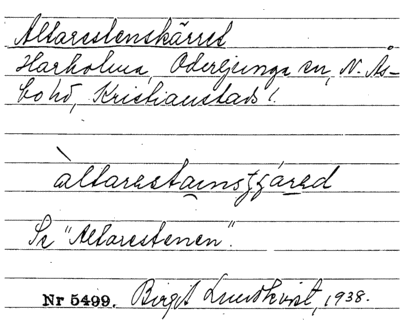 Altarestenskärret
Harholma, Oderljunga sn, N. Ås-
bo hd, Kristianstads l.
àltarestainsʃʃárəd
Se "Altarestenen".
Nr 5499. Birgit Lundkvist, 1938.